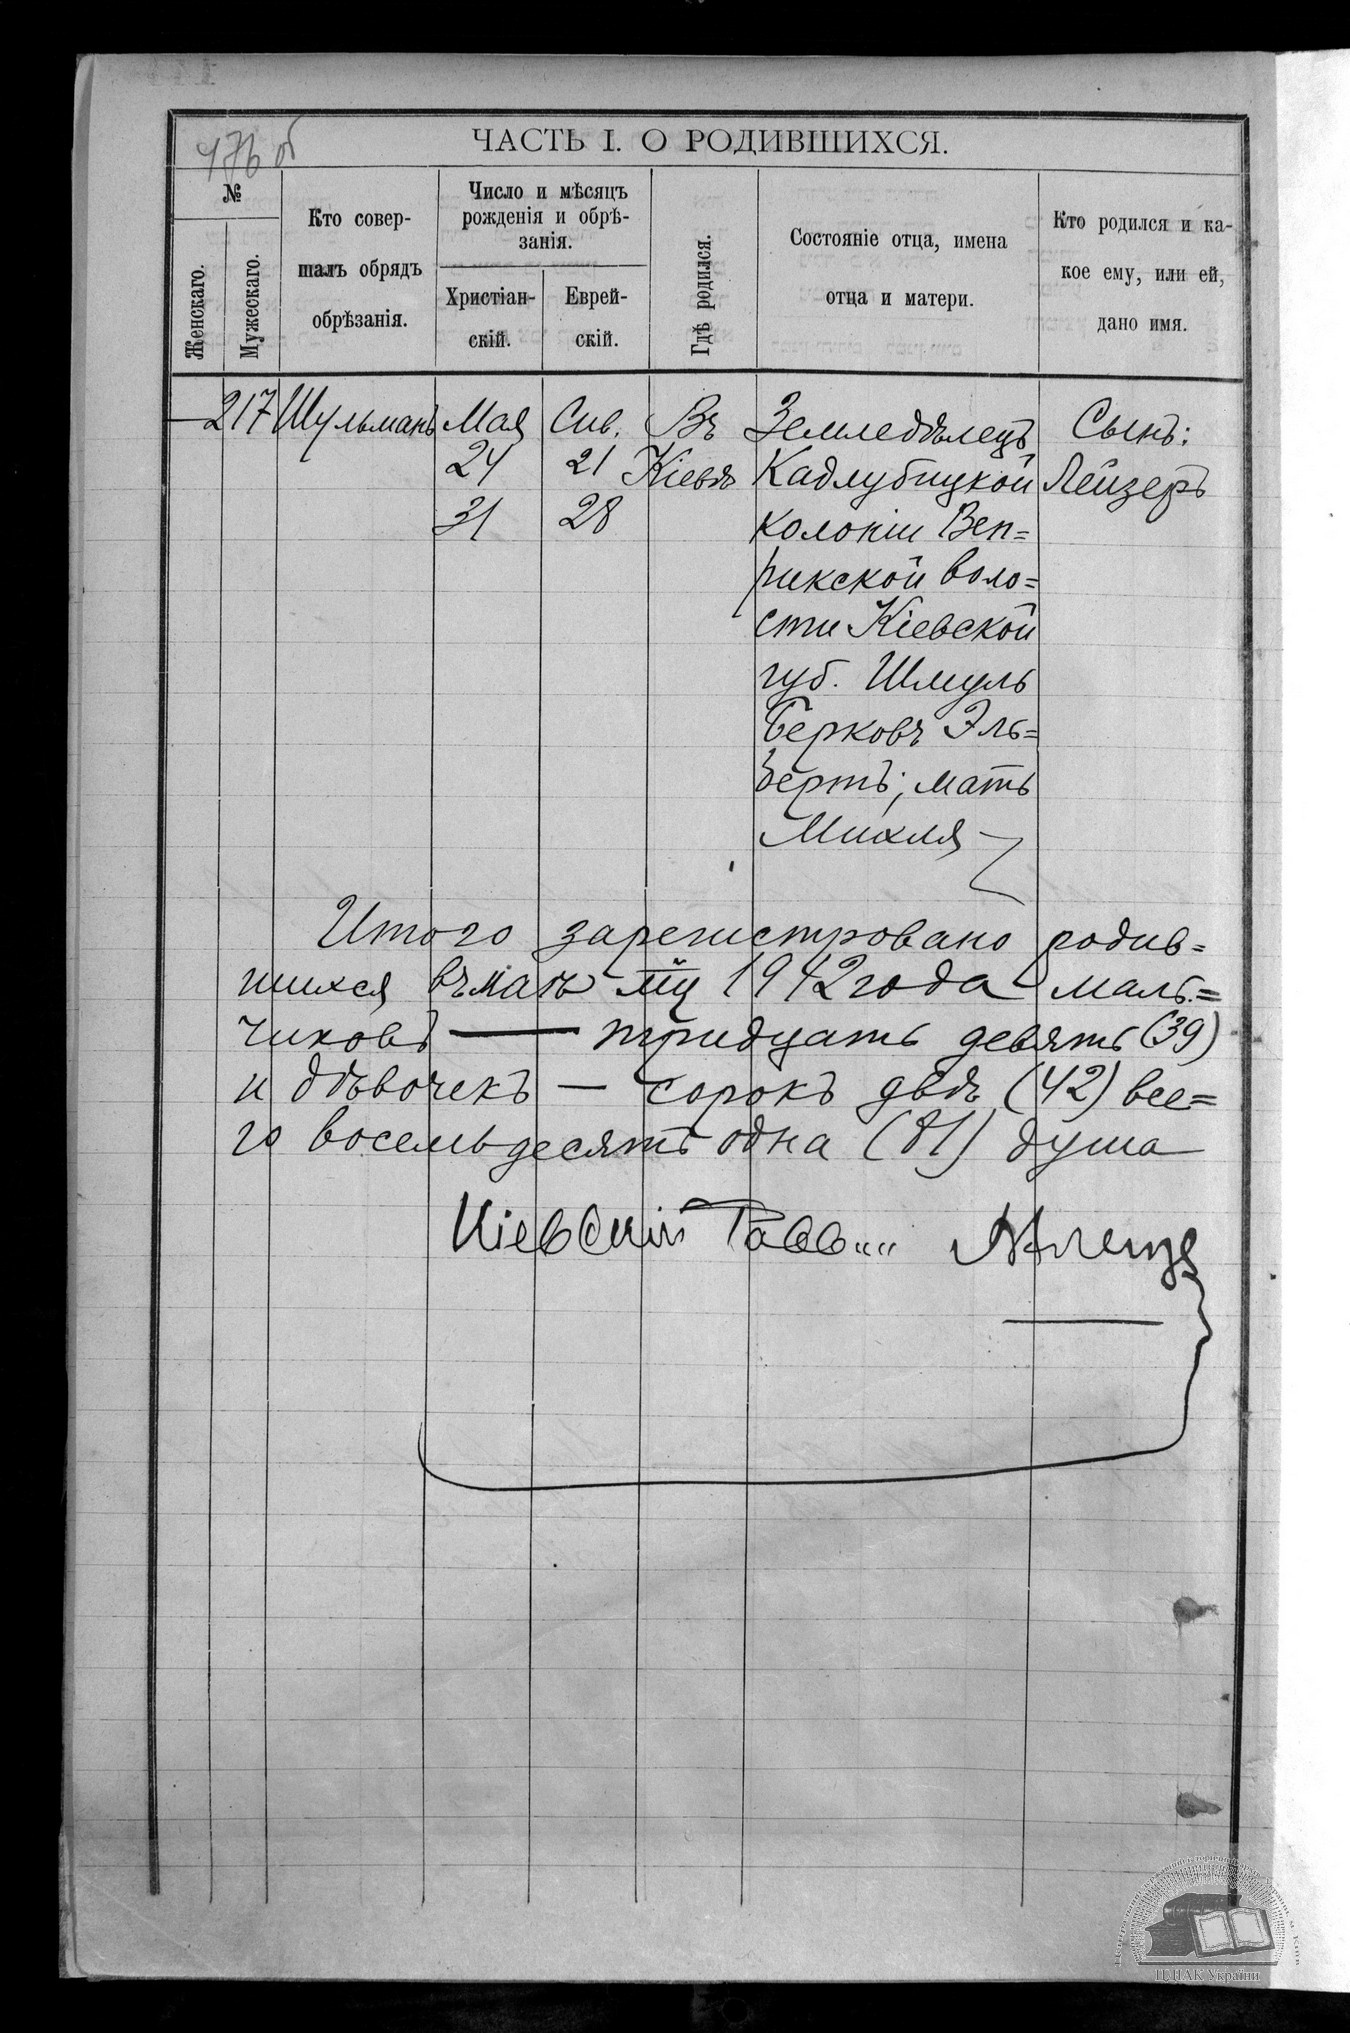 476 об
ЧАСТЬ I. О РОДИВШИХСЯ.
№
Женскаго.
Мужескаго.
Кто совер-
шалъ обрядъ
обрѣзанія.
Число и мѣсяцъ
рожденія и обрѣ-
занія.
Христіан-
скій.
Еврей-
скій.
Гдѣ родился.
Состояніе отца, имена
отца и матери.
Кто родился и ка-
кое ему, или ей,
дано имя.
— 217 Шульманъ Мая Сив. Въ Земледѣлецъ Сынъ:
24 21 Кіевѣ Кадлубицкой Лейзеръ
31 28 колоніи Веп=
рикской воло=
сти Кіевской
губ. Шмуль
Берковъ Эль=
бертъ; мать
Михля
Итого зарегистровано родив=
шихся въ маѣ мцѣ 1912 года маль=
чиковъ — тридцать девять (39)
и дѣвочекъ — сорокъ двѣ (42) все=
го восемьдесятъ одна (81) душа
Кіевскій Равв
ЦДІАК України